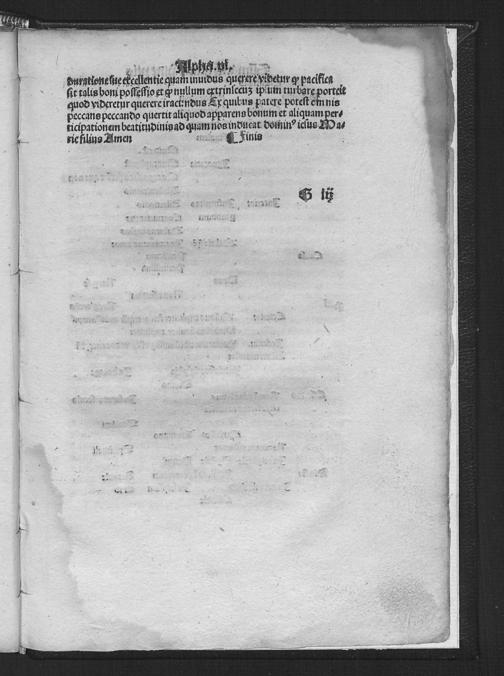 Alpha. vi.
durationē sue excellentie quam inuidus querere videtur qꝫ pacifica
sit talis boni possessio et qꝫ nullum extrinsecuꝫ ipsum turbare
quod videretur querere iracūndus Ex quibus patere potest omnis
peccans peccando querit aliquod apparens bonum et aliquam per-
ticipationem beatitudinis ad quam nos inducat domin⁹ iesus Ma-
rie filius Amen ¶Finis
G iij